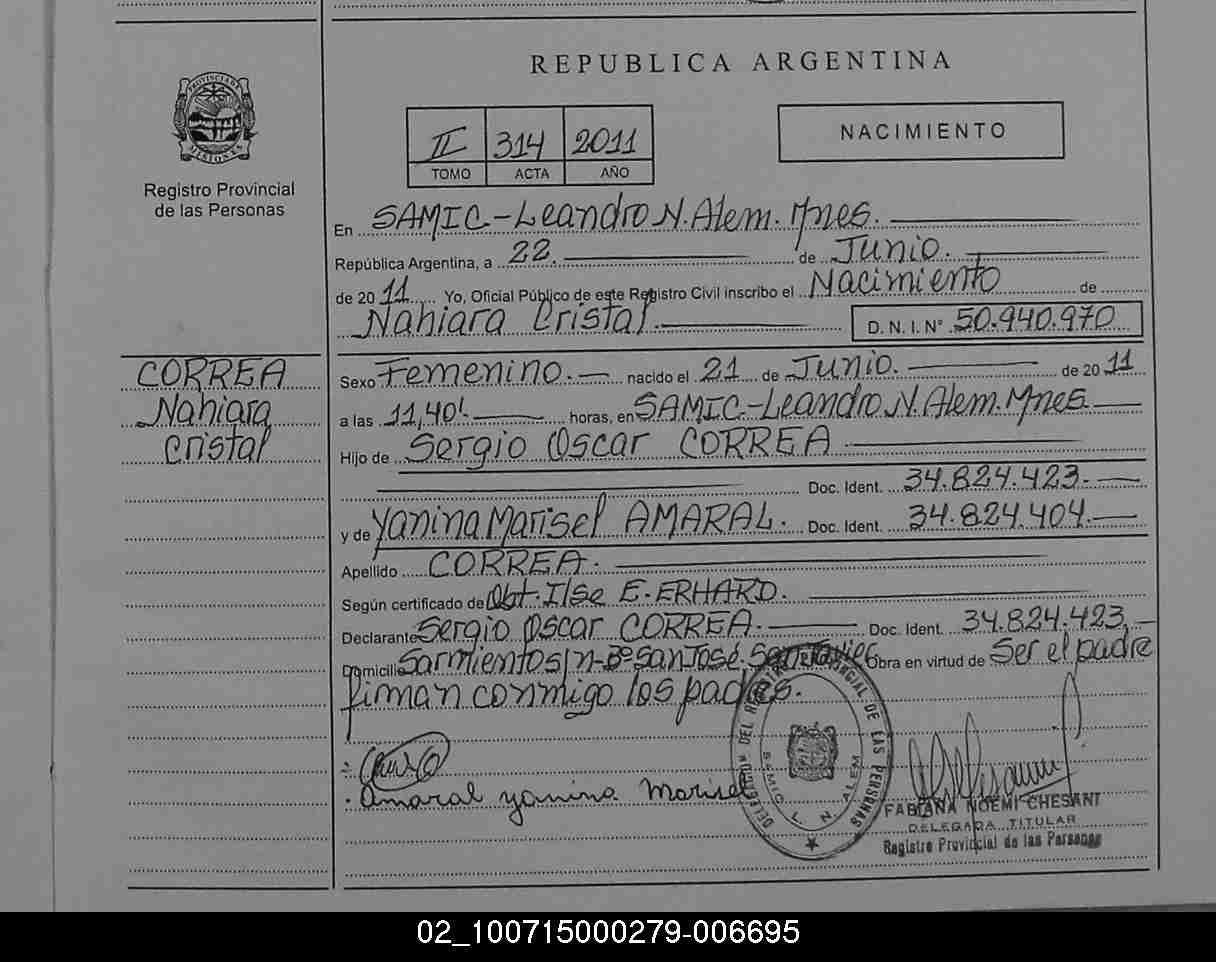 REPUBLICA ARGENTINA
PROVINCIA DE
MISIONES
Registro Provincial
de las Personas
II 314 2011
TOMO ACTA AÑO
NACIMIENTO
En SAMIC-Leandro N. Alem. Mnes.
República Argentina, a 22. de Junio.
de 20 11 Yo, Oficial Público de este Registro Civil inscribo el Nacimiento de
Nahiara Cristal. D. N. I. N° 50.940.970
CORREA
Nahiara
Cristal
Sexo Femenino. nacido el 21 de Junio. de 20 11
a las 11,40'. horas, en SAMIC.-Leandro N. Alem. Mnes
Hijo de Sergio Oscar CORREA
Doc. Ident. 34.824.423.
y de Yanina Marisel AMARAL. Doc. Ident. 34.824.404.
Apellido CORREA.
Según certificado de Obt. Ilse E. ERHARD.
Declarante Sergio Oscar CORREA. Doc. Ident. 34.824.423.
Domicilio Sarmiento s/n-Bº San José, San Javier Obra en virtud de Ser el padre
firman conmigo los padres.
Amaral yanina Marisel
DELEGACION DEL REGISTRO PROVINCIAL DE LAS PERSONAS
SAMIC L. N. ALEM
FABIANA NOEMI CHESANI
DELEGADA TITULAR
Registro Provincial de las Personas
02_100715000279-006695